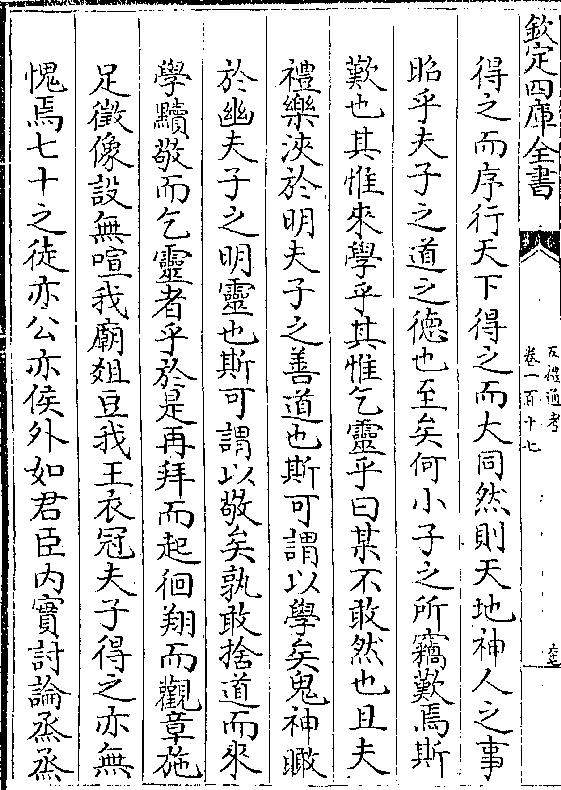 欽定四庫全書
五禮通考
卷一百十七
得之而序行天下得之而大同然則天地神人之事
昭乎夫子之道之德也至矣何小子之所竊歎焉斯
歎也其惟來學乎其惟乞靈乎曰某不敢然也且夫
禮樂浹於明夫子之善道也斯可謂以學矣鬼神瞰
於幽夫子之明靈也斯可謂以敬矣孰敢捨道而來
學黷敬而乞靈者乎於是再拜而起徊翔而觀章施
足徵像設無喧我廟爼豆我王衣冠夫子得之亦無
愧焉七十之徒亦公亦侯外如君臣内實討論烝烝